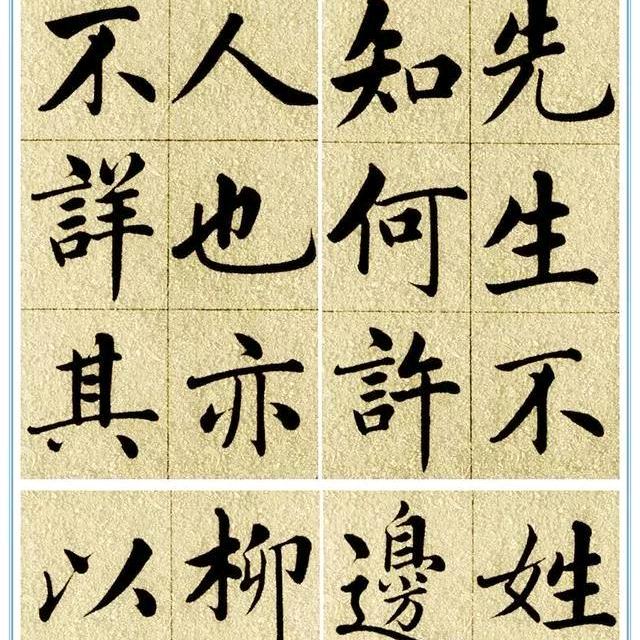 先生不
知何許
人也亦
不詳其
姓
邊
柳
以